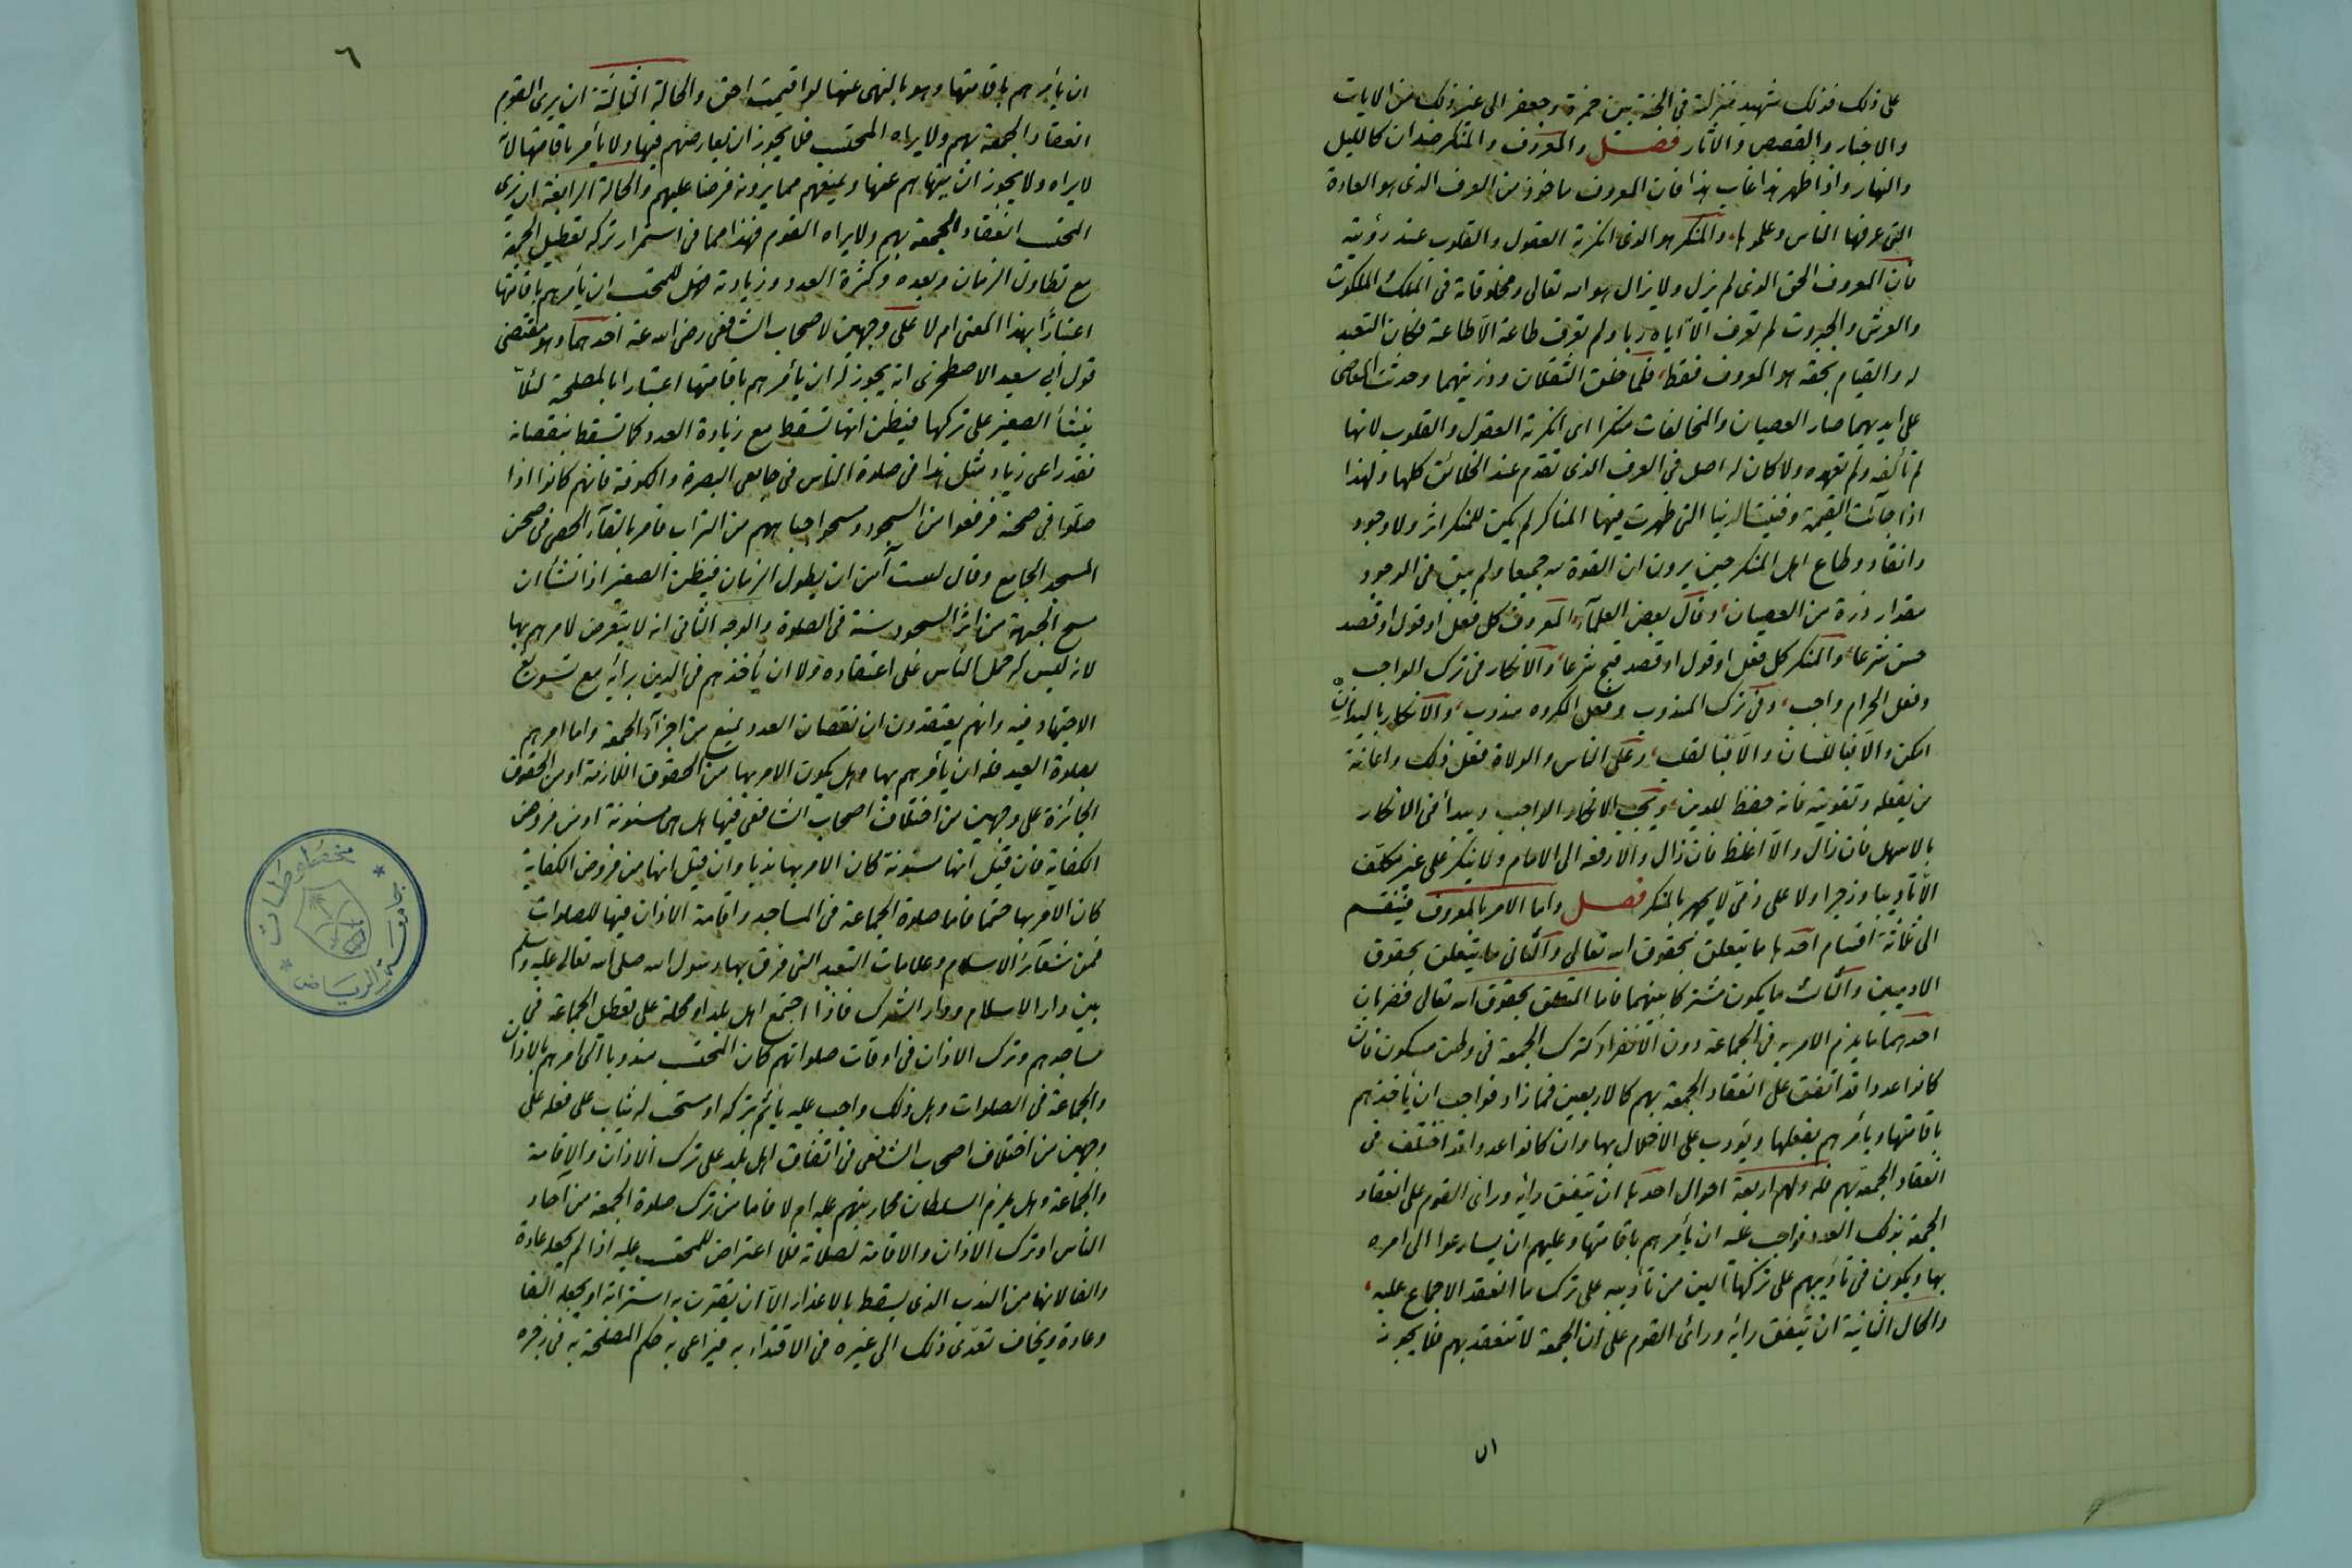 على ذلك فذلك شهيد منزلته فى الجنة بين حمزة وجعفر الى غير ذلك من الايات
والاخبار والقصص والآثار فصل والمعروف والمنكر ضدان كالليل
والنهار واذا ظهر هذا غاب هذا فان المعروف ماخوذ من العرف الذى هو العادة
التى عرفها الناس وعلموها والمنكر هو الذى انكرته العقول والقلوب عند رؤيته
فان المعروف الحق الذى لم يزل ولا يزال هو الله تعالى ومخلوقاته فى الملك والملكوت
والعرش والجبروت لم تعرف الا اياه ربا ولم تعرف طاعة الا طاعة فكان التعبد
له والقيام بحقه هو المعروف فقط فلما خلق الثقلان وذريتهما وحدثت المعاصى
على ايديهما صار العصيان والمخالفات منكرا اى انكرته العقول والقلوب لانها
لم تألفه ولم تعهده ولا كان له اصل فى العرف الذى تقدم عند الخلائق كلها ولهذا
اذا جائت القيمة وفنيت الدنيا التى ظهرت فيها المناكر لم يكن للمنكر اثر ولا وجود
وانقاد وطاع اهل المنكر حين يرون ان القوة لله جميعا ولم يبق فى الوجود
مقدار ذرة من العصيان وقال بعض العلمآء المعروف كل فعل او قول او قصد
حسن شرعا والمنكر كل فعل او قول او قصد قبح شرعا والانكار فى ترك الواجب
وفعل الحرام واجب وفى ترك المندوب وفعل المكروه مندوب والانكار باليد ان
امكن والا فباللسان والا فبالقلب وعلى الناس والولاة فعل ذلك واعانة
من يفعله وتقويته فانه حفظ للدين ويجب الانكار الواجب ويبدأ فى الانكار
بالاسهل فان زال والا اغلظ فان زال والا رفعه الى الامام ولا ينكر على غير مكلف
الا تأديبا وزجرا ولا على ذمى لا يجهر بالمنكر فصل واما الامر بالمعروف فينقسم
الى ثلاثة اقسام احدها ما يتعلق بحقوق الله تعالى والثانى ما يتعلق بحقوق
الادميين والثالث ما يكون مشتركا بينهما فاما المتعلق بحقوق الله تعالى فضربان
احدهما ما يلزم الامر به فى الجماعة دون الانفراد كترك الجمعة فى وطن مسكون فان
كانوا عددا قد اتفق على انعقاد الجمعة بهم كالاربعين فما زاد فواجب ان يأخذهم
باقامتها ويأمرهم بفعلها ويؤدب على الاخلال بها وان كانوا عددا قد اختلف فى
انعقاد الجمعة بهم فله ولهم اربعة احوال احدها ان يتفق رأيه ورأى القوم على انعقاد
الجمعة بذلك العدد فواجب عليه ان يأمرهم باقامتها وعليهم ان يسارعوا الى امره
بها ويكون فى تأديبهم على تركها الين من تأديبه على ترك ما انعقد الاجماع عليه
والحال الثانية ان يتفق رأيه ورأى القوم على ان الجمعة لا تنعقد بهم فلا يجوز
ان
٦
ان يأمرهم باقامتها وهو بالنهى عنها لو اقيمت احق والحالة الثالثة ان يرى القوم
انعقاد الجمعة بهم ولا يراه المحتسب فلا يجوز ان يعارضهم فيها ولا يأمر باقامتها لانه
لا يراه ولا يجوز ان ينهاهم عنها ويمنعهم مما يرونه فرضا عليهم والحالة الرابعة ان يرى
المحتسب انعقاد الجمعة بهم ولا يراه القوم فهذا مما فى استمرار تركه تعطيل الجمعة
مع تطاول الزمان وبعده وكثرة العدد وزيادته فهل للمحتسب ان يأمرهم باقامتها
اعتبارا بهذا المعنى ام لا على وجهين لاصحاب الشافعى رضى الله عنه احدهما وهو مقتضى
قول ابى سعيد الاصطخرى انه يجوز له ان يأمرهم باقامتها اعتبارا بالمصلحة لئلا
ينشأ الصغير على تركها فيظن انها تسقط مع زيادة العدد كما تسقط بنقصانه
فقد راعى زياد مثل هذا فى صلوة الناس فى جامعى البصرة والكوفة فانهم كانوا اذا
صلوا فى صحنه فرفعوا من السجود مسحوا جباههم من التراب فامر بالقآء الحصى فى صحن
المسجد الجامع وقال لست آمن ان يطول الزمان فيظن الصغير اذا نشأ ان
مسح الجبهة من اثر السجود سنة فى الصلوة والوجه الثانى انه لا يتعرض لامرهم بها
لانه ليس له حمل الناس على اعتقاده ولا ان يأخذهم فى الدين برأيه مع تسويغ
الاجتهاد فيه وانهم يعتقدون ان نقصان العدد يمنع من اجزآء الجمعة واما امرهم
بصلوة العيد فله ان يأمرهم بها وهل يكون الامر بها من الحقوق اللازمة او من الحقوق
الجائزة على وجهين من اختلاف اصحاب الشافعى فيها هل هى مسنونة او من فروض
الكفاية فان قيل انها مسنونة كان الامر بها ندبا وان قيل انها من فروض الكفاية
كان الامر بها حتما فاما صلوة الجماعة فى المساجد واقامة الاذان فيها للصلوات
فمن شعآئر الاسلام وعلامات التعبد التى فرق بها رسول الله صلى الله تعالى عليه وسلم
بين دار الاسلام ودار الشرك فاذا اجتمع اهل بلد او محلة على تعطيل الجماعة فى
مساجدهم وترك الاذان فى اوقات صلواتهم كان المحتسب مندوبا الى امرهم بالاذان
والجماعة فى الصلوات وهل ذلك واجب عليه يأثم بتركه او مستحب له يثاب على فعله على
وجهين من اختلاف اصحاب الشافعى فى اتفاق اهل بلد على ترك الاذان والاقامة
والجماعة وهل يلزم السلطان محاربتهم عليه ام لا فاما من ترك صلوة الجمعة من آحاد
الناس او ترك الاذان والاقامة لصلاته فلا اعتراض للمحتسب عليه اذا لم يجعله عادة
والفا لانها من الندب الذى يسقط بالاعذار الا ان يقترن به استرابة او يجعله الفا
وعادة ويخاف تعدى ذلك الى غيره فى الاقتداء به فيراعى به حكم المصلحة به فى زجره
جامعة الرياض
مخطوطات